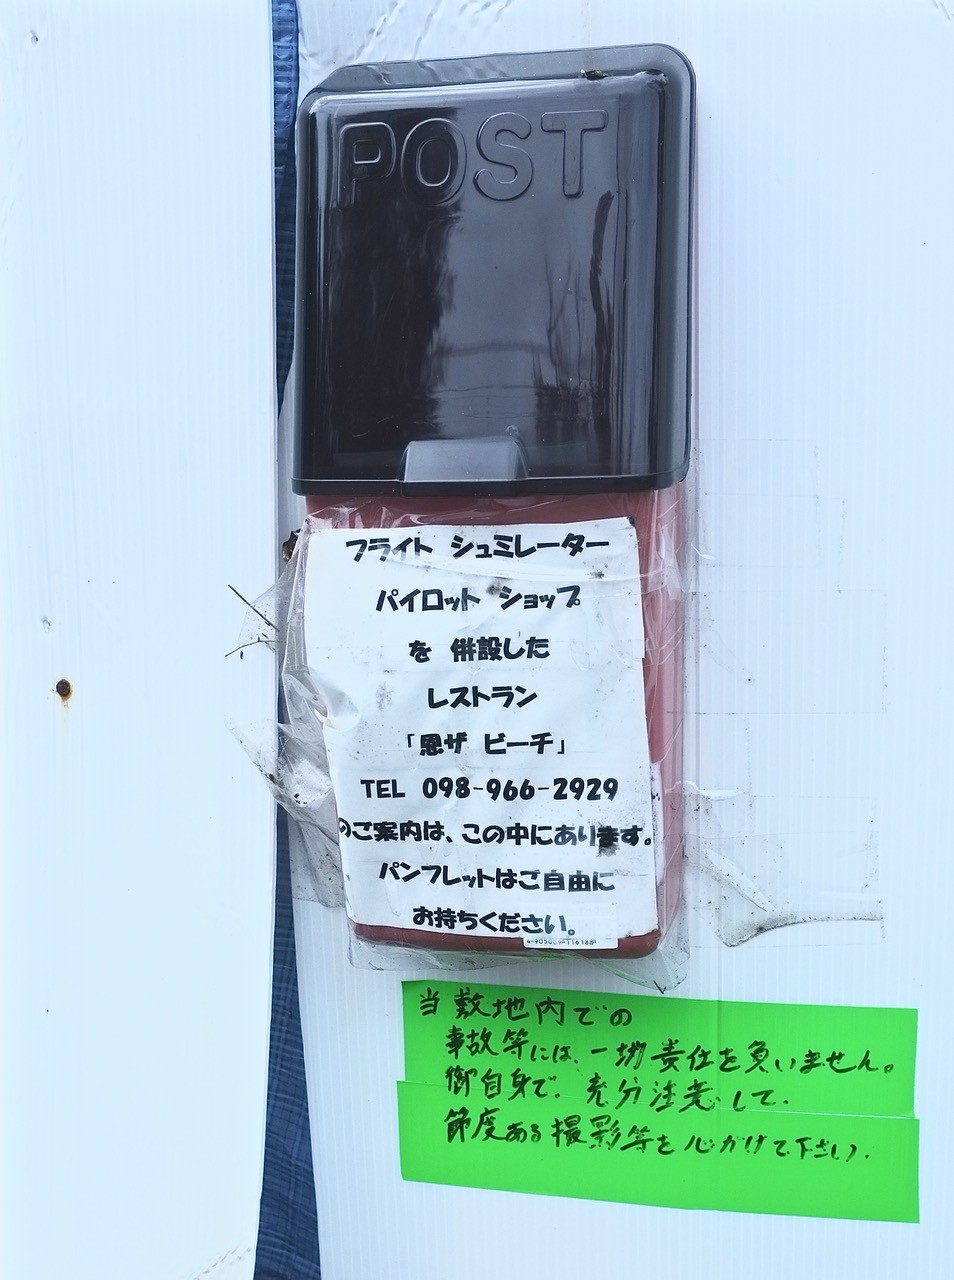 POST
フライト シュミレーター
パイロット ショップ
を 併設した
レストラン
「恩ザ ビーチ」
TEL 098-966-2929
のご案内は、この中にあります。
パンフレットはご自由に
お持ちください。
当敷地内での
事故等には、一切責任を負いません。
御自身で、充分注意して、
節度ある撮影等を心がけて下さい。